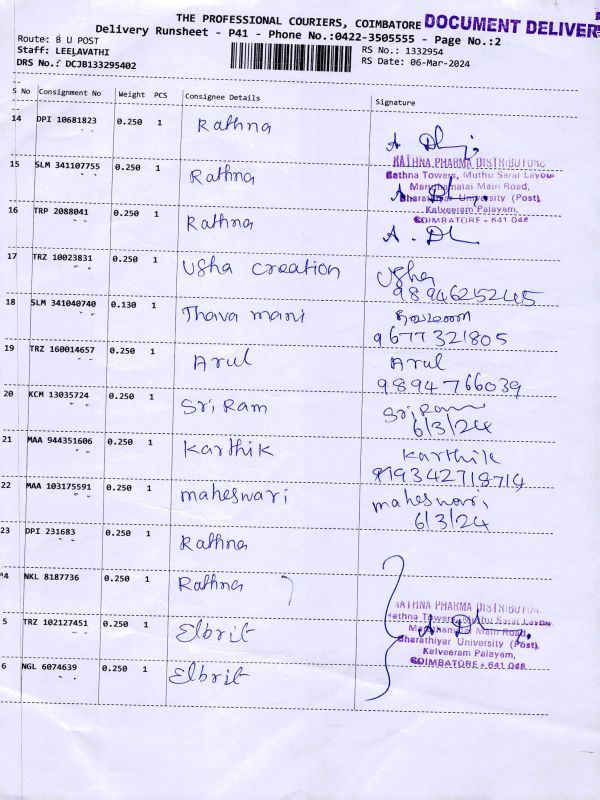 THE PROFESSIONAL COURIERS, COIMBATORE DOCUMENT DELIVER
Delivery Runsheet - P41 - Phone No.:0422-3505555 - Page No.:2
Route: B U POST
Staff: LEELAVATHI
DRS No.: DCJB133295402
RS No.: 1332954
RS Date: 06-Mar-2024
S No Consignment No Weight PCS Consignee Details Signature
14 DPI 10681823 0.250 1 Rathna
RATHNA PHARMA DISTRIBUTORS
15 SLM 341107755 0.250 1 Rathna
Rathna Towers, Muthu Sarai Layout
Maruthamalai Main Road,
Bharathiyar University (Post),
Kalveeram Palayam,
COIMBATORE - 641 046
16 TRP 2088041 0.250 1 Rathna
17 TRZ 10023831 0.250 1 Usha creation Usha
9894625245
18 SLM 341040740 0.130 1 Thava mani தவமணி
9677321805
19 TRZ 160014657 0.250 1 Arul Arul
9894766039
20 KCM 13035724 0.250 1 Sri Ram Sri Ram
6/3/24
21 MAA 944351606 0.250 1 Karthik Karthik
22 MAA 103175591 0.250 1 maheswari maheswari
6/3/24
23 DPI 231683 0.250 1 Rathna
24 NKL 8187736 0.250 1 Rathna
RATHNA PHARMA DISTRIBUTO
Rathna Towers, Muthu Sarai Layou
5 TRZ 102127451 0.250 1 Elbrit
Maruthamalai Main Road,
Bharathiyar University (Post),
Kalveeram Palayam,
COIMBATORE - 641 046
6 NGL 6074639 0.250 1 Elbrit